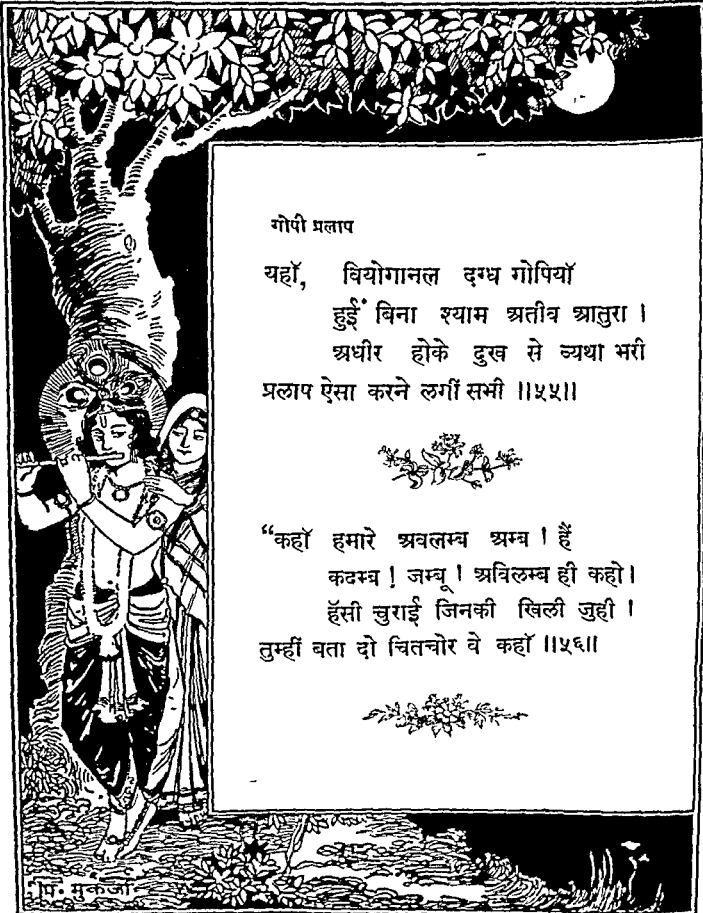 गोपी प्रलाप
यहाॅ, वियोगानल दग्ध गोपियाॅ
हुईं बिना श्याम अतीव आतुरा ।
अधीर होके दुख से व्यथा भरी
प्रलाप ऐसा करने लगीं सभी ॥५५॥
“कहाॅ हमारे अवलम्ब अम्ब ! हैं
कदम्ब ! जम्बू ! अविलम्ब ही कहो।
हॅसी चुराई जिनकी खिली जुही !
तुम्हीं बता दो चितचोर वे कहाॅ ॥५६॥
पि. मुकर्जी